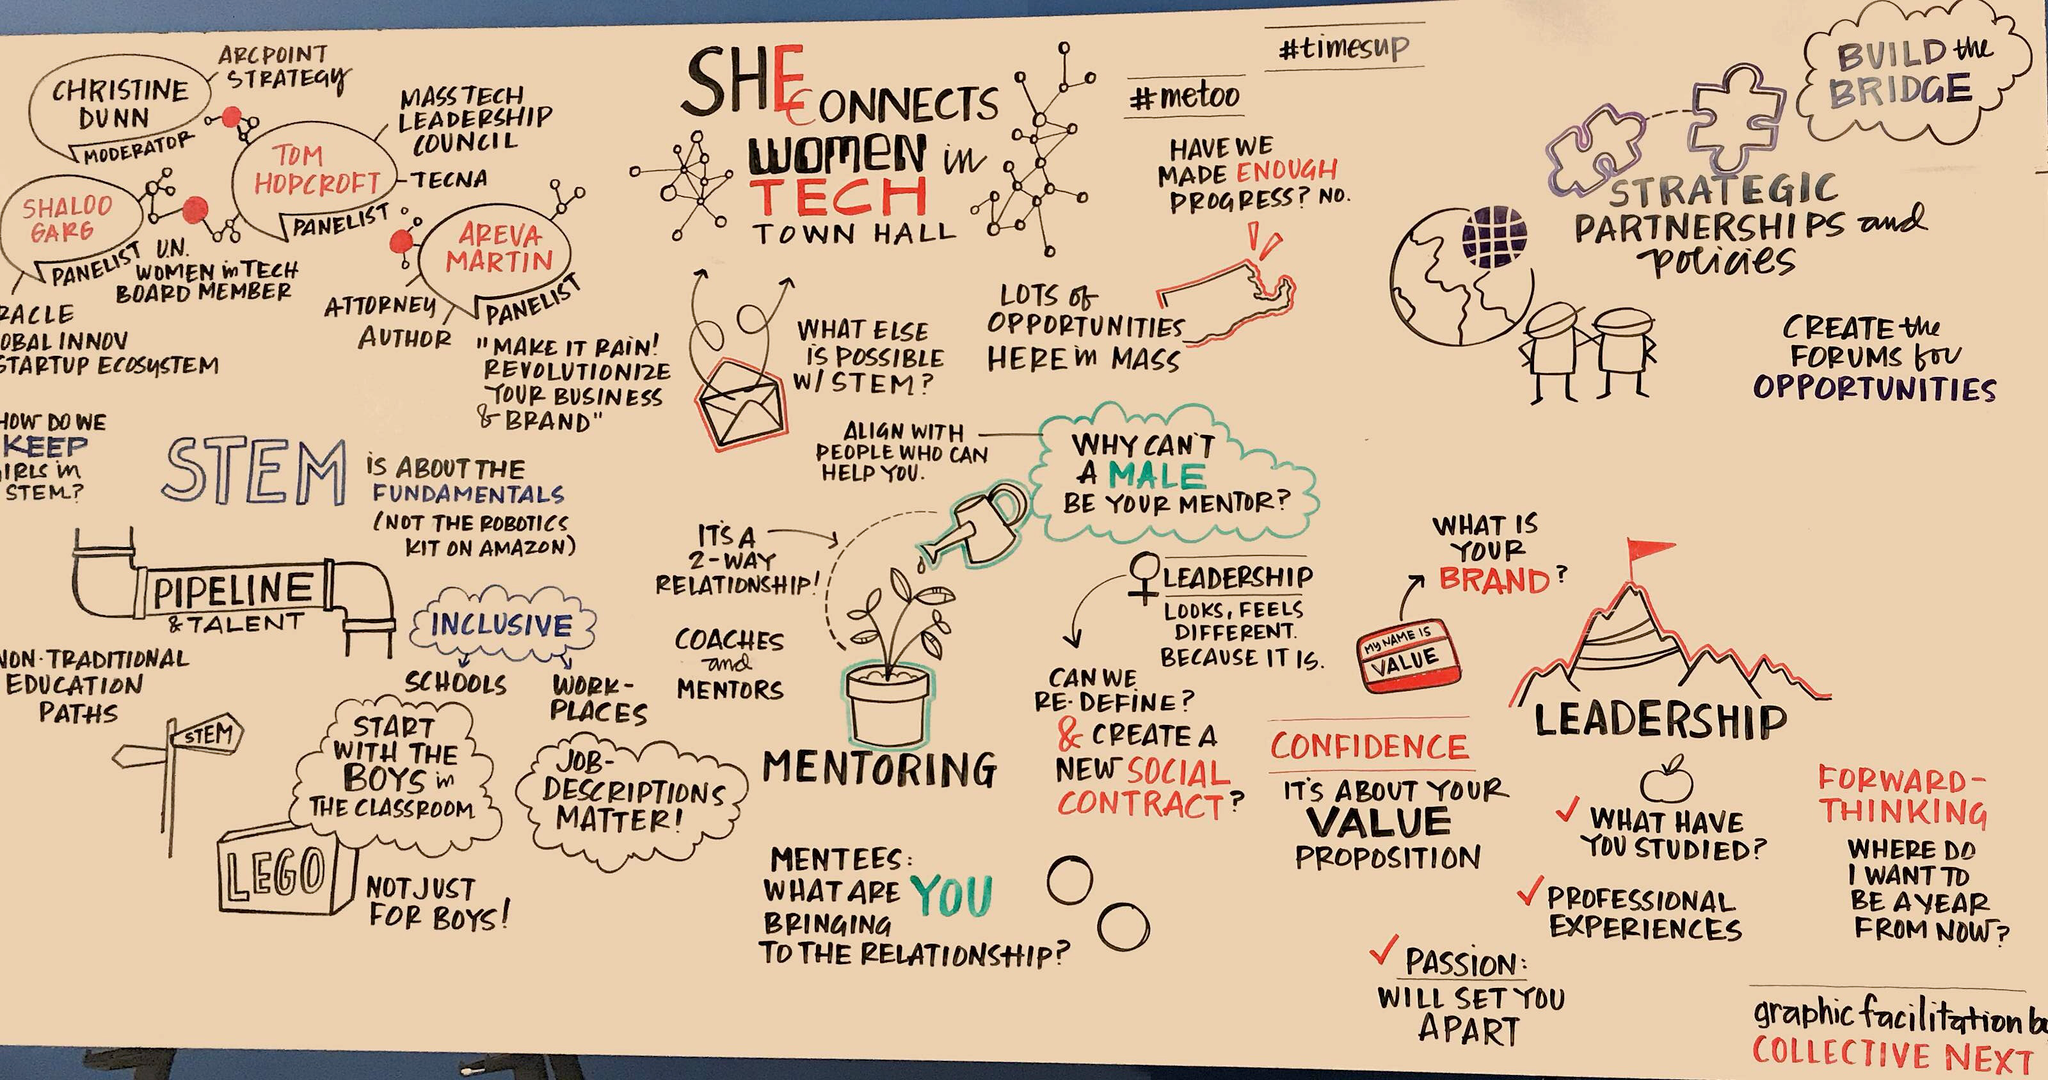 CHRISTINE
DUNN
MODERATOR
ARCPOINT
STRATEGY
TOM
HOPCROFT
PANELIST
MASS TECH
LEADERSHIP
COUNCIL
TECNA
SHALOO
GARG
PANELIST
U.N.
WOMEN in TECH
BOARD MEMBER
RACLE
OBAL INNOV
STARTUP ECOSYSTEM
AREVA
MARTIN
PANELIST
ATTORNEY
AUTHOR
"MAKE IT RAIN!
REVOLUTIONIZE
YOUR BUSINESS
& BRAND"
SHE
CONNECTS
WOMEN in
TECH
TOWN HALL
#metoo
#timesup
HAVE WE
MADE ENOUGH
PROGRESS? NO.
LOTS of
OPPORTUNITIES
HERE in MASS
WHAT ELSE
IS POSSIBLE
W/ STEM?
BUILD the
BRIDGE
STRATEGIC
PARTNERSHIPS and
policies
CREATE the
FORUMS for
OPPORTUNITIES
HOW DO WE
KEEP
IRLS in
STEM?
STEM
IS ABOUT THE
FUNDAMENTALS
(NOT THE ROBOTICS
KIT ON AMAZON)
PIPELINE
& TALENT
INCLUSIVE
SCHOOLS
WORK-
PLACES
NON-TRADITIONAL
EDUCATION
PATHS
STEM
START
WITH THE
BOYS in
THE CLASSROOM
LEGO
NOT JUST
FOR BOYS!
JOB-
DESCRIPTIONS
MATTER!
ALIGN WITH
PEOPLE WHO CAN
HELP YOU.
WHY CAN'T
A MALE
BE YOUR MENTOR?
IT'S A
2-WAY
RELATIONSHIP!
COACHES
and
MENTORS
MENTORING
MENTEES:
WHAT ARE YOU
BRINGING
TO THE RELATIONSHIP?
LEADERSHIP
LOOKS, FEELS
DIFFERENT.
BECAUSE IT IS.
CAN WE
RE-DEFINE?
& CREATE A
NEW SOCIAL
CONTRACT?
WHAT IS
YOUR
BRAND?
MY NAME IS
VALUE
CONFIDENCE
IT'S ABOUT YOUR
VALUE
PROPOSITION
LEADERSHIP
WHAT HAVE
YOU STUDIED?
PROFESSIONAL
EXPERIENCES
PASSION:
WILL SET YOU
APART
FORWARD-
THINKING
WHERE DO
I WANT TO
BE A YEAR
FROM NOW?
graphic facilitation by
COLLECTIVE NEXT